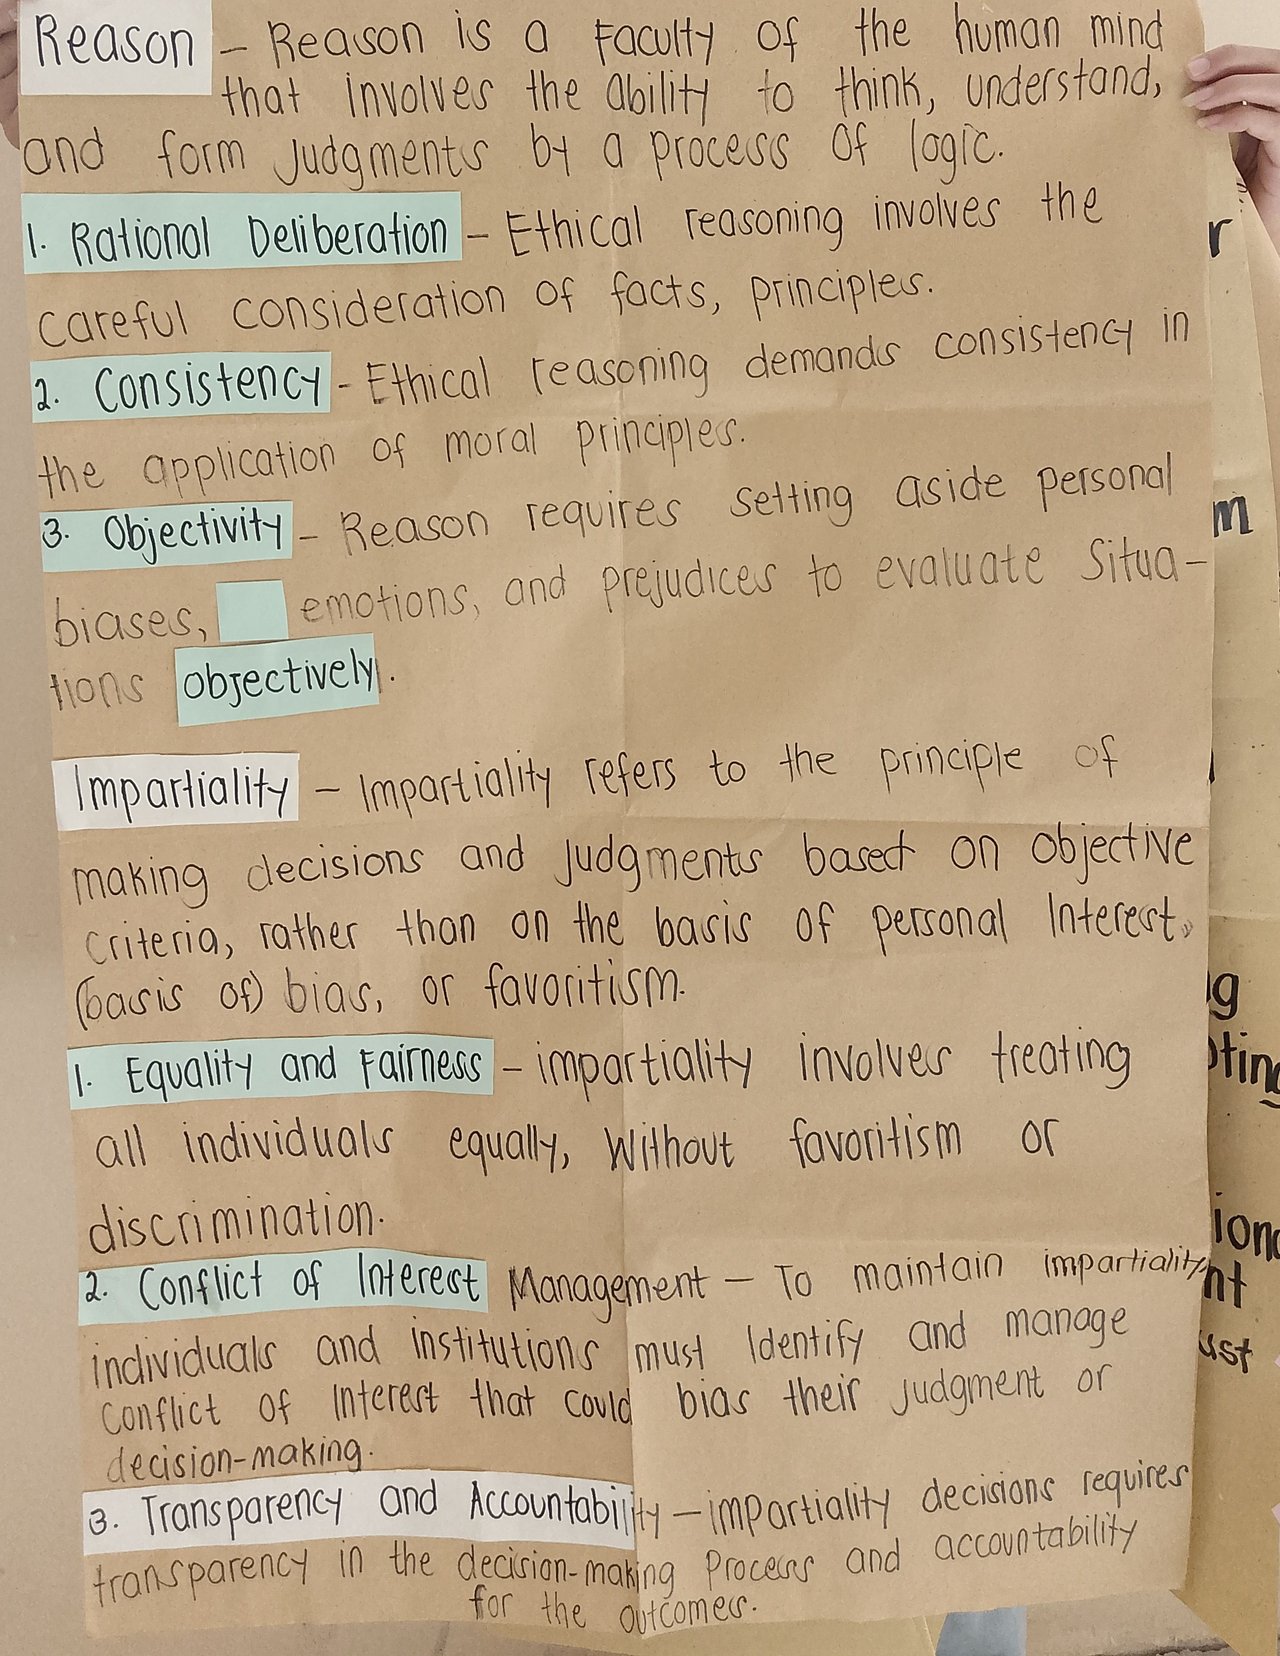 Reason - Reason is a Faculty of the human mind
that involves the ability to think, understand,
and form judgments by a process of logic.
1. Rational Deliberation - Ethical reasoning involves the
careful consideration of facts, principles.
2. Consistency - Ethical reasoning demands consistency in
the application of moral principles.
3. Objectivity - Reason requires setting aside personal
biases, emotions, and prejudices to evaluate situa-
tions objectively.
Impartiality - Impartiality refers to the principle of
making decisions and judgments based on objective
criteria, rather than on the basis of personal Interest.
(basis of) bias, or favoritism.
1. Equality and Fairness - impartiality involves treating
all individuals equally, Without favoritism or
discrimination.
2. Conflict of Interest Management - To maintain impartiality,
individuals and institutions must Identify and manage
conflict of Interest that could bias their judgment or
decision-making.
3. Transparency and Accountability - impartiality decisions requires
transparency in the decision-making Process and accountability
for the outcomes.